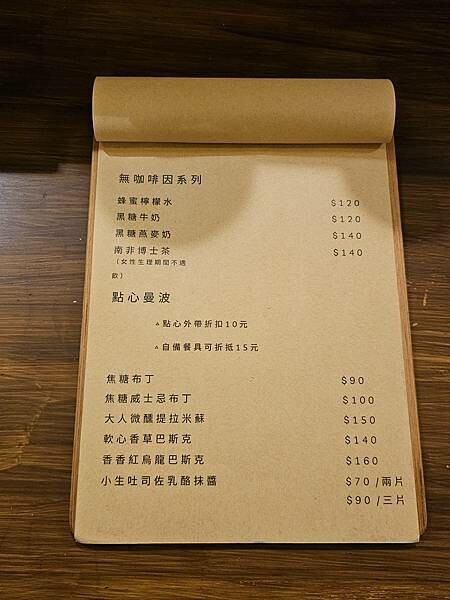 無咖啡因系列
蜂蜜檸檬水 $120
黑糖牛奶 $120
黑糖燕麥奶 $140
南非博士茶 $140
(女性生理期間不適
飲)
點心曼波
▵點心外帶折扣10元
▵自備餐具可折抵15元
焦糖布丁 $90
焦糖威士忌布丁 $100
大人微醺提拉米蘇 $150
軟心香草巴斯克 $140
香香紅烏龍巴斯克 $160
小生吐司佐乳酪抹醬 $70/兩片
$90/三片